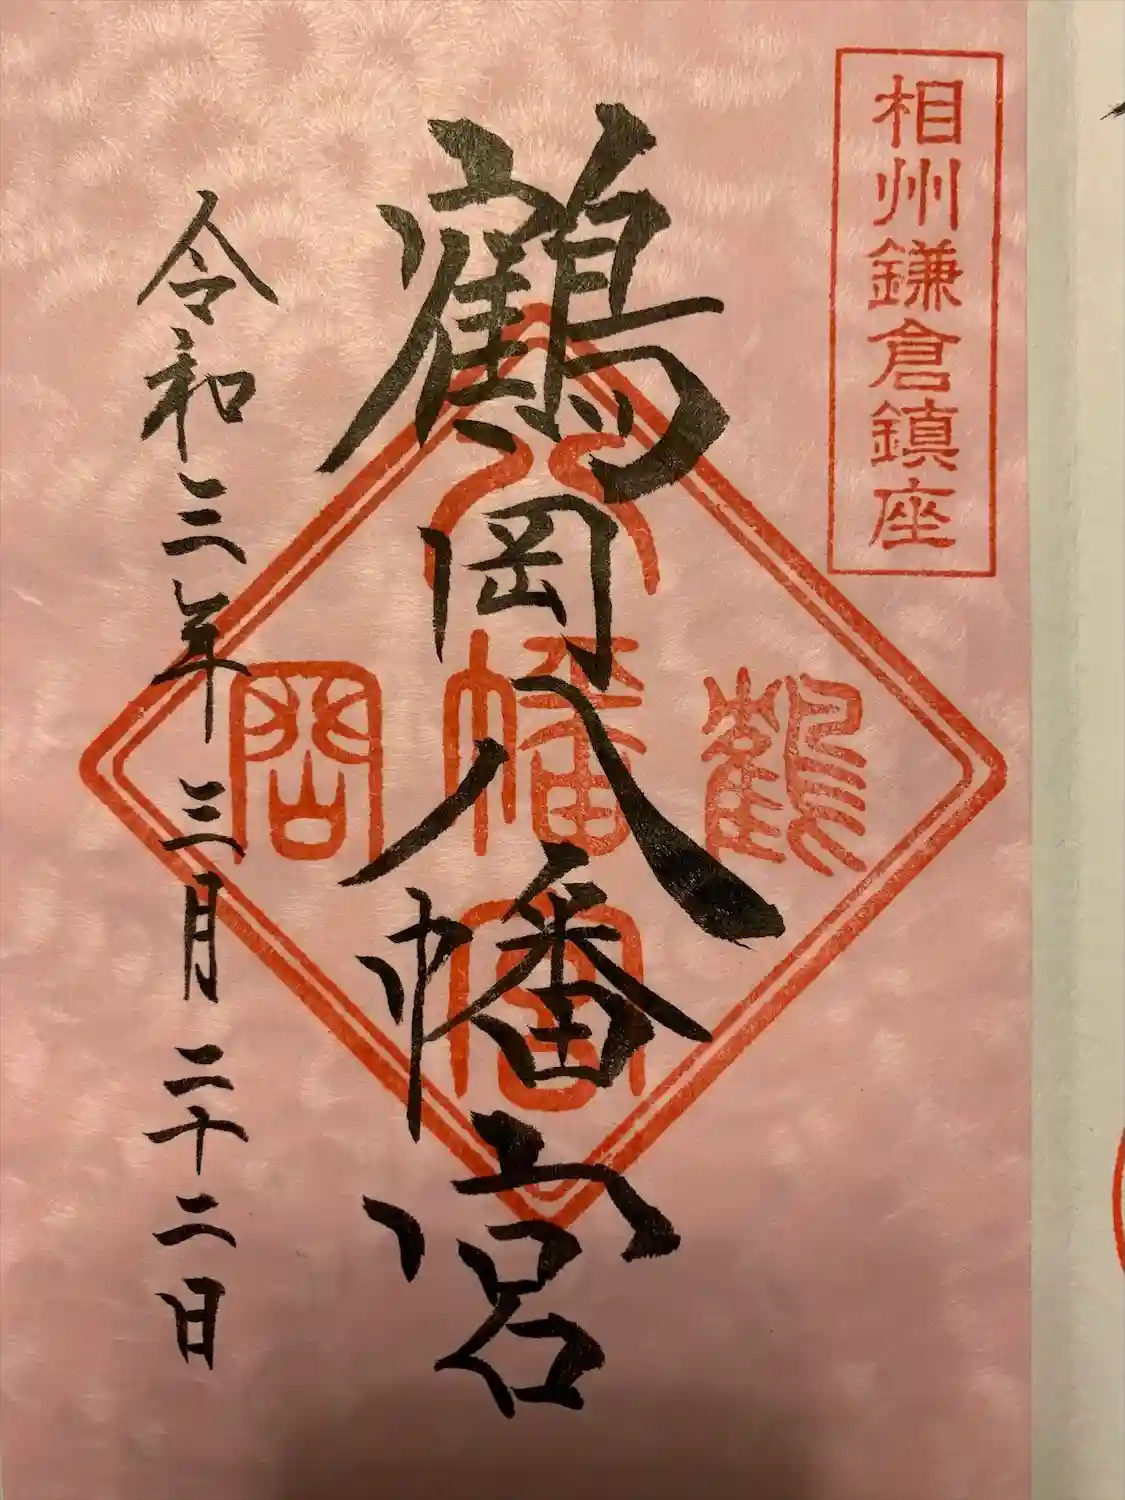 相州鎌倉鎮座
鶴岡八幡宮
鶴
八幡宮
岡
令和三年三月二十二日